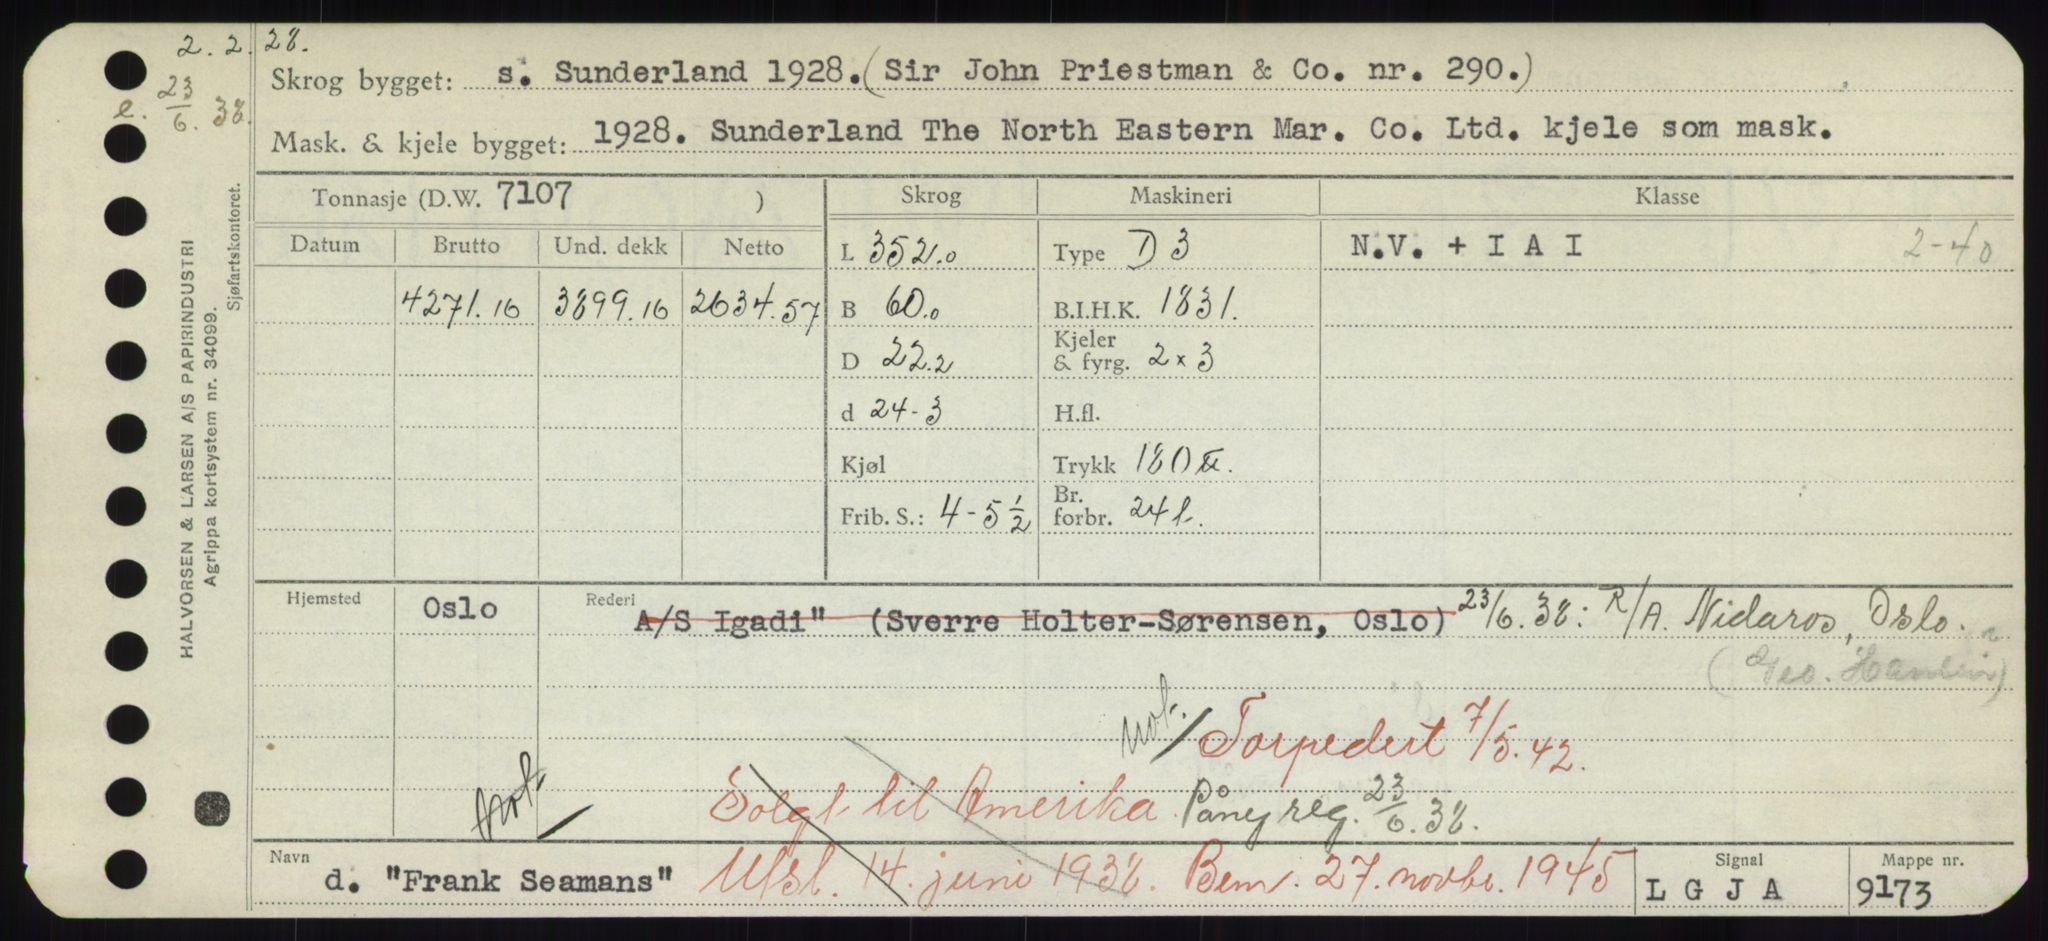 2. 2. 28.
e. 23/6. 38.
HALVORSEN & LARSEN A/S PAPIRINDUSTRI
Agrippa kortsystem nr. 34099.
Sjøfartskontoret.
Skrog bygget: s. Sunderland 1928. (Sir John Priestman & Co. nr. 290.)
Mask. & kjele bygget: 1928. Sunderland The North Eastern Mar. Co. Ltd. kjele som mask.
Tonnasje (D.W. 7107 ) Skrog Maskineri Klasse
Datum Brutto Und. dekk Netto L 352.0 Type D 3 N.V. + I A I 2-40
4271.16 3899.16 2634.57 B 60.0 B.I.H.K. 1831.
D 22.2 Kjeler & fyrg. 2 x 3
d 24-3 H.fl.
Kjøl Trykk 180 lbs.
Frib. S.: 4-5 1/2 Br. forbr. 24 t.
Hjemsted Oslo Rederi A/S Igadi" (Sverre Holter-Sørensen, Oslo) 23/6. 38: R/A. Nidaros, Oslo.
not. Torpedert 7/5. 42.
not. Solgt til Amerika. Påny reg. 23/6. 38.
Navn d. "Frank Seamans" Utsl. 14. juni 1938. Bem. 27. novbr. 1945 Signal L G J A Mappe nr. 9173